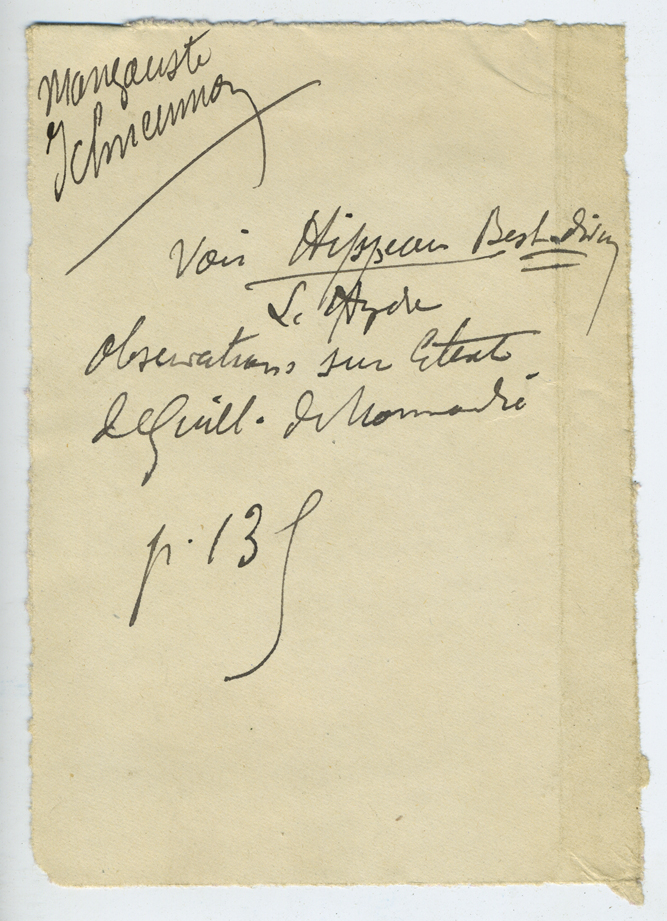 Mangouste
Ichneumon
Voir Hippeau Best. divin
L'Hydre
Observations sur le texte
de Guill. de Normandie
p. 135